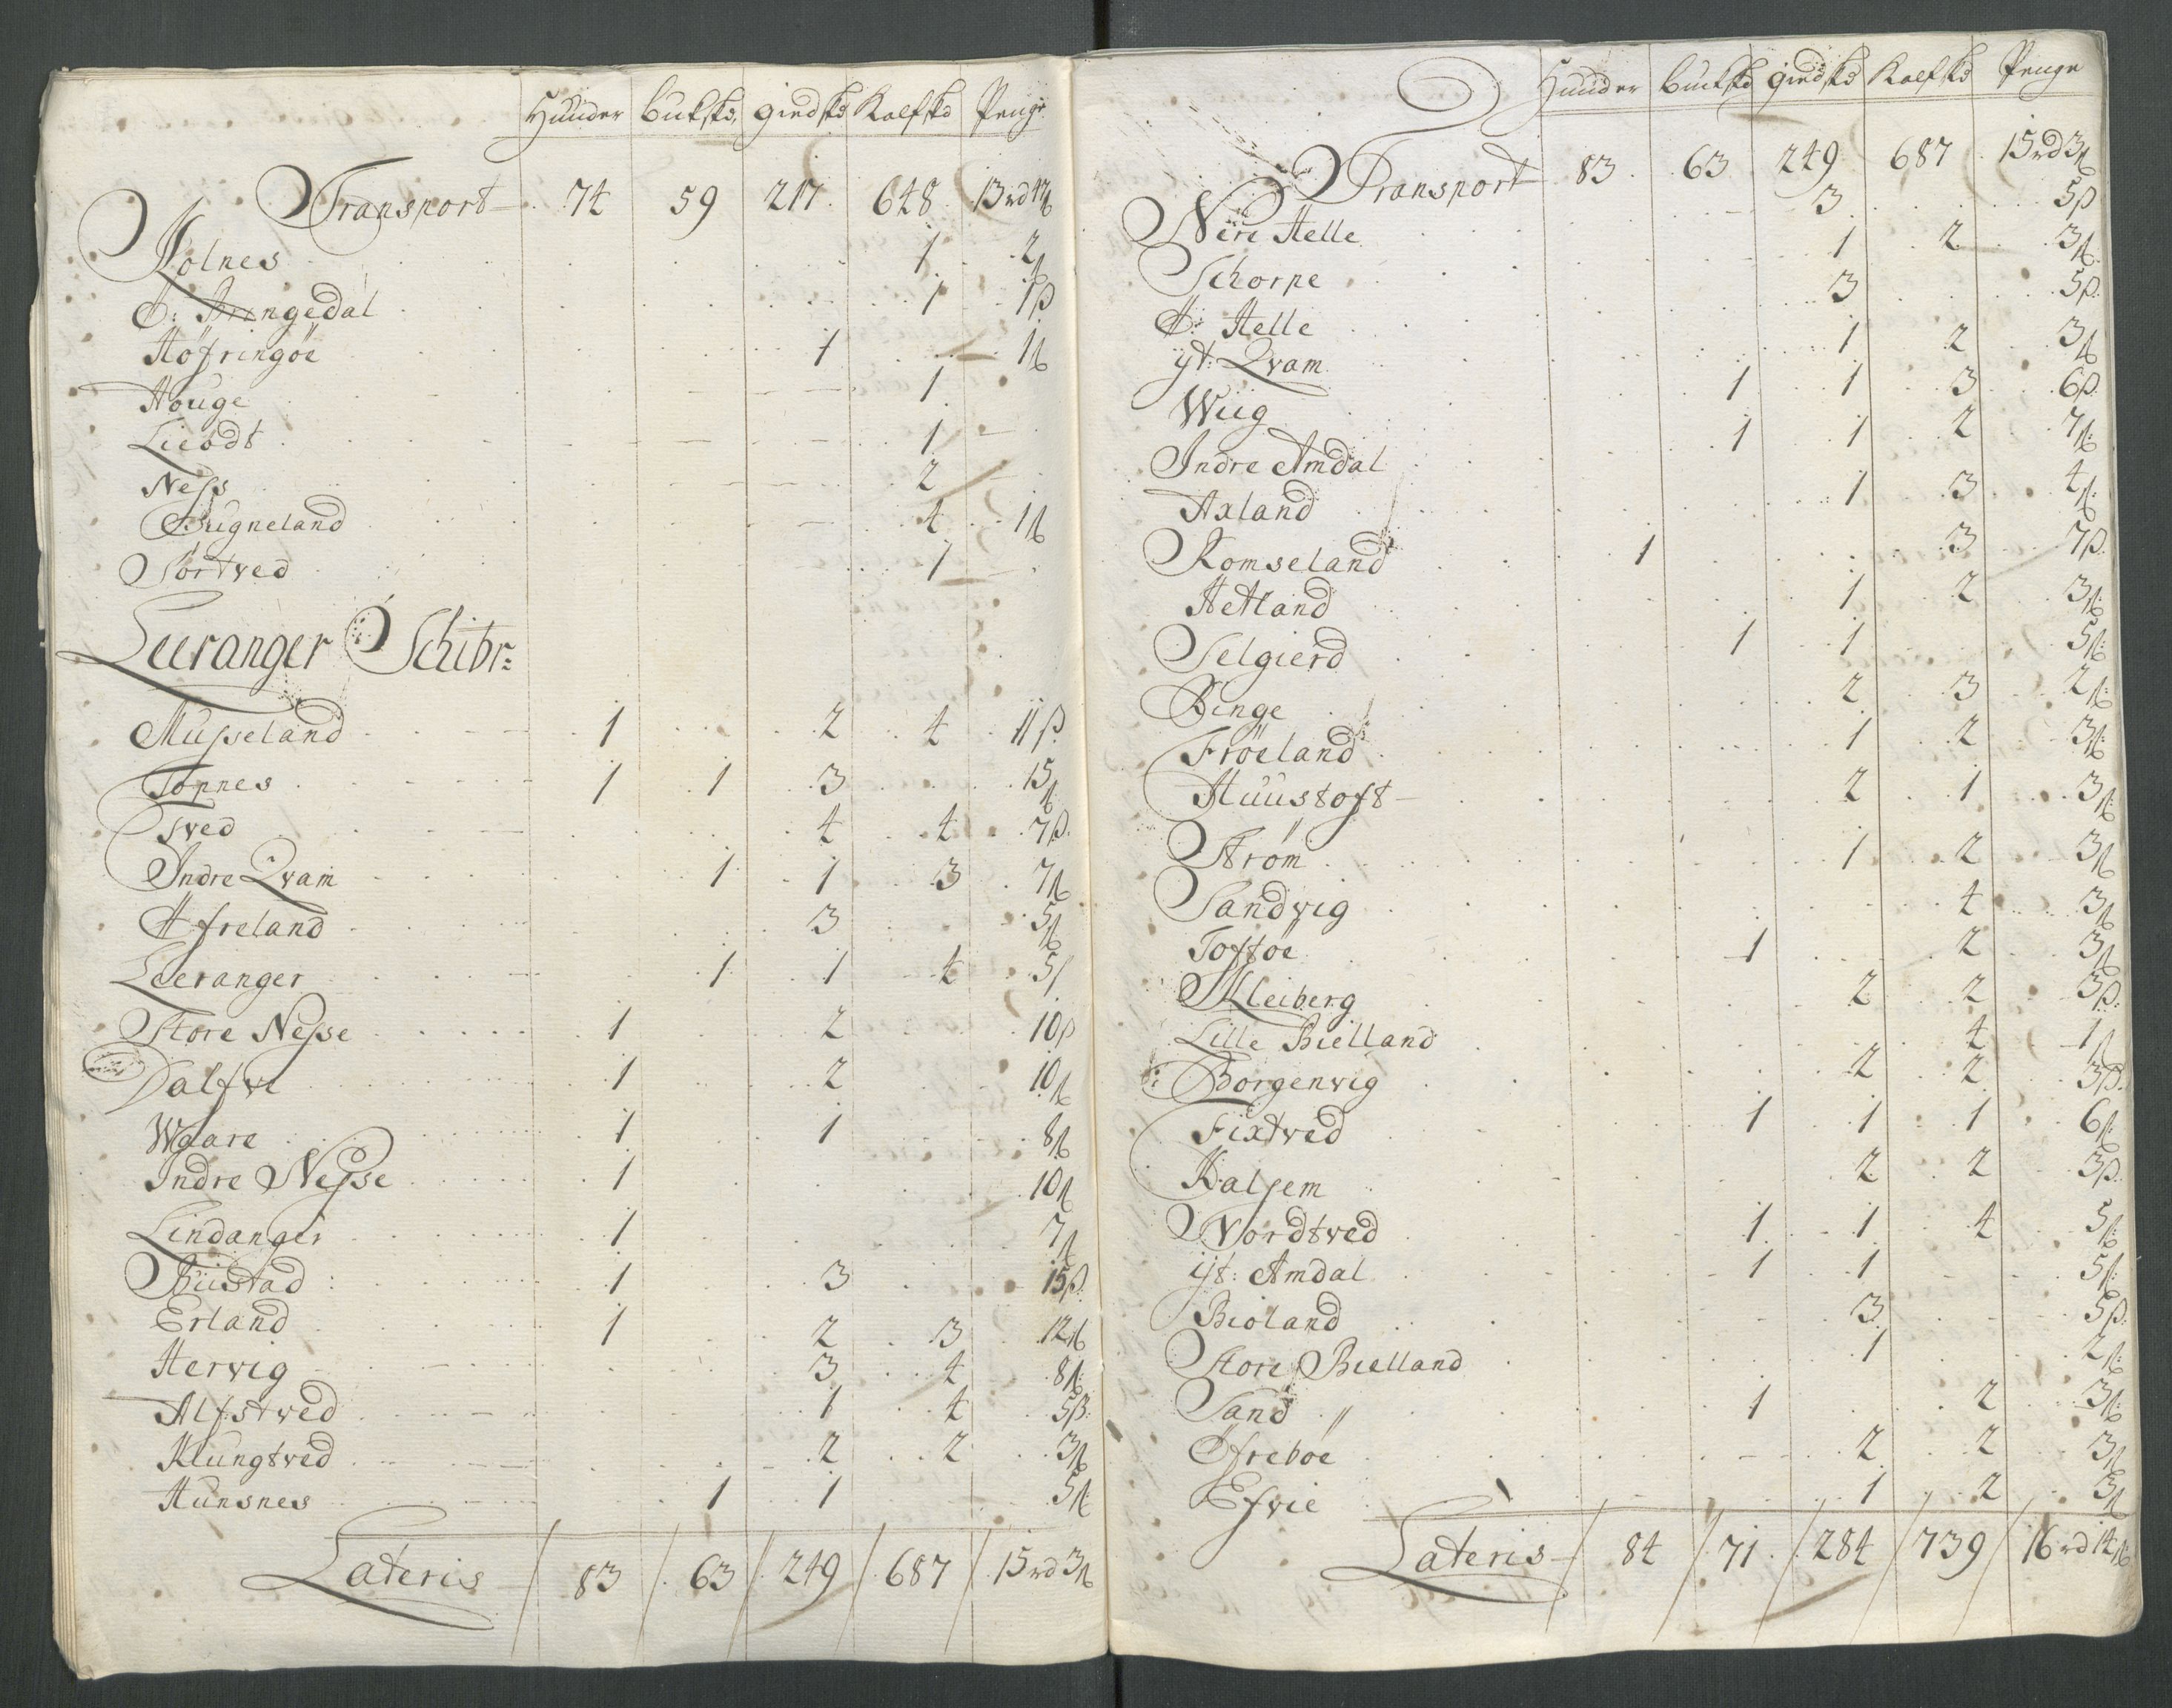 Huuder Bukskd, giedskd Kalfskd Penge
Transport 74 59 217 648 13 rd
Kolnes 1 2
1 1ß
Höfringöe 1 1
Houge 1
Liebdt 1
Ness 2
Bugneland 4 1
Sørtved 1
Leeranger Schibr:
Musseland 1 2 4 11ß
Tonnes 1 1 3 15
Tved 4 4 7ß
Indre Qvam 1 1 3 7
Øfreland 3 5
Leeranger 1 1 4 5
Store Nesse 1 2 10ß
Dalfve 1 2 10
Waare 1 1 8
Indre Nesse 1 10
Lindanger 1 7
Büstad 1 3 15ß
Erland 1 2 3 12
Hervig 3 4 8
Alfstved 1 4 5ß
Klungtved 2 2 3
Hunsnes 1 1 5
Lateris 83 63 249 687 15 rd 3
Huuder Buckskd giedskd Kalfskd Penge
Transport 83 63 249 687 15 rd 3
Nere Helle 3 5ß
Schorpe 1 2 3
Ø: Helle 3 5ß
yt: Qvam 1 2 3
Wiig 1 1 3 6ß
Indre Amdal 1 1 2 7
Axland 1 3 4
Romseland 1 3 7ß
Hetland 1 2 3
Selgierd 1 1 5
Binge 2 3 2
Frøeland 1 2 3
Huustoft 2 1 3
Strøm 1 2 3
Sandvig 4 3
Toftøe 1 2 3
Kleiberg 2 2 3ß
Lille Bielland 4 1
Borgenvig 2 2 3ß
Fixtved 1 1 1 6
Halsem 2 2 3ß
Nordtved 1 1 4 5
yt: Amdal 1 1 5
Bioland 3 5ß
Store Bielland 1 2
Sand 1 2 3
Øfrebøe 2 2 3
Efvie 1 2 3
Lateris 84 71 284 739 16 rd 14